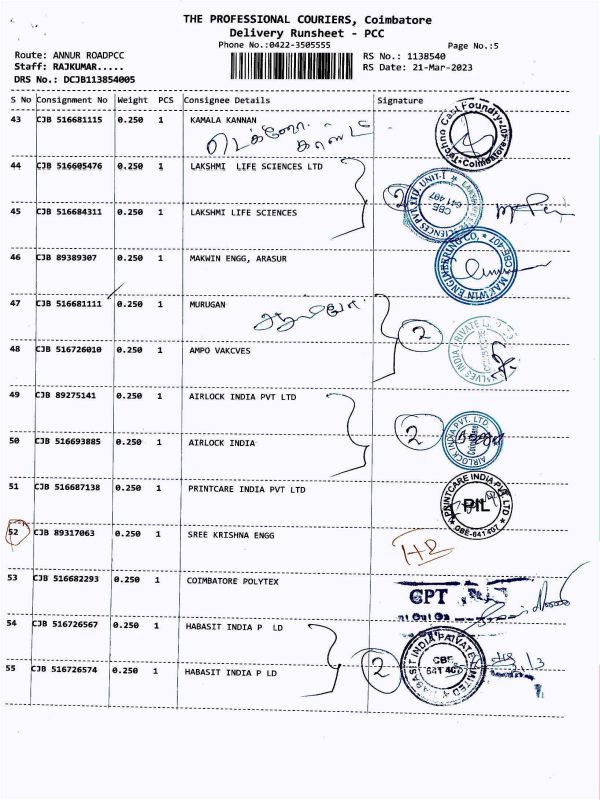 THE PROFESSIONAL COURIERS, Coimbatore
Delivery Runsheet - PCC
Phone No.:0422-3505555
Page No.:5
Route: ANNUR ROADPCC
RS No.: 1138540
Staff: RAJKUMAR.....
RS Date: 21-Mar-2023
DRS No.: DCJB113854005
S No Consignment No Weight PCS Consignee Details Signature
43 CJB 516681115 0.250 1 KAMALA KANNAN
44 CJB 516605476 0.250 1 LAKSHMI LIFE SCIENCES LTD
2
45 CJB 516684311 0.250 1 LAKSHMI LIFE SCIENCES
46 CJB 89389307 0.250 1 MAKWIN ENGG, ARASUR
47 CJB 516681111 0.250 1 MURUGAN
2
48 CJB 516726010 0.250 1 AMPO VAKCVES
49 CJB 89275141 0.250 1 AIRLOCK INDIA PVT LTD
2
AIRLOCK INDIA PVT. LTD.
50 CJB 516693885 0.250 1 AIRLOCK INDIA
51 CJB 516687138 0.250 1 PRINTCARE INDIA PVT LTD
PRINTCARE INDIA PVT. LTD
PIL
CBE-641 407
52 CJB 89317063 0.250 1 SREE KRISHNA ENGG
53 CJB 516682293 0.250 1 COIMBATORE POLYTEX
CPT
54 CJB 516726567 0.250 1 HABASIT INDIA P LD
2
HABASIT INDIA PRIVATE LIMITED
CBE
641 407
55 CJB 516726574 0.250 1 HABASIT INDIA P LD